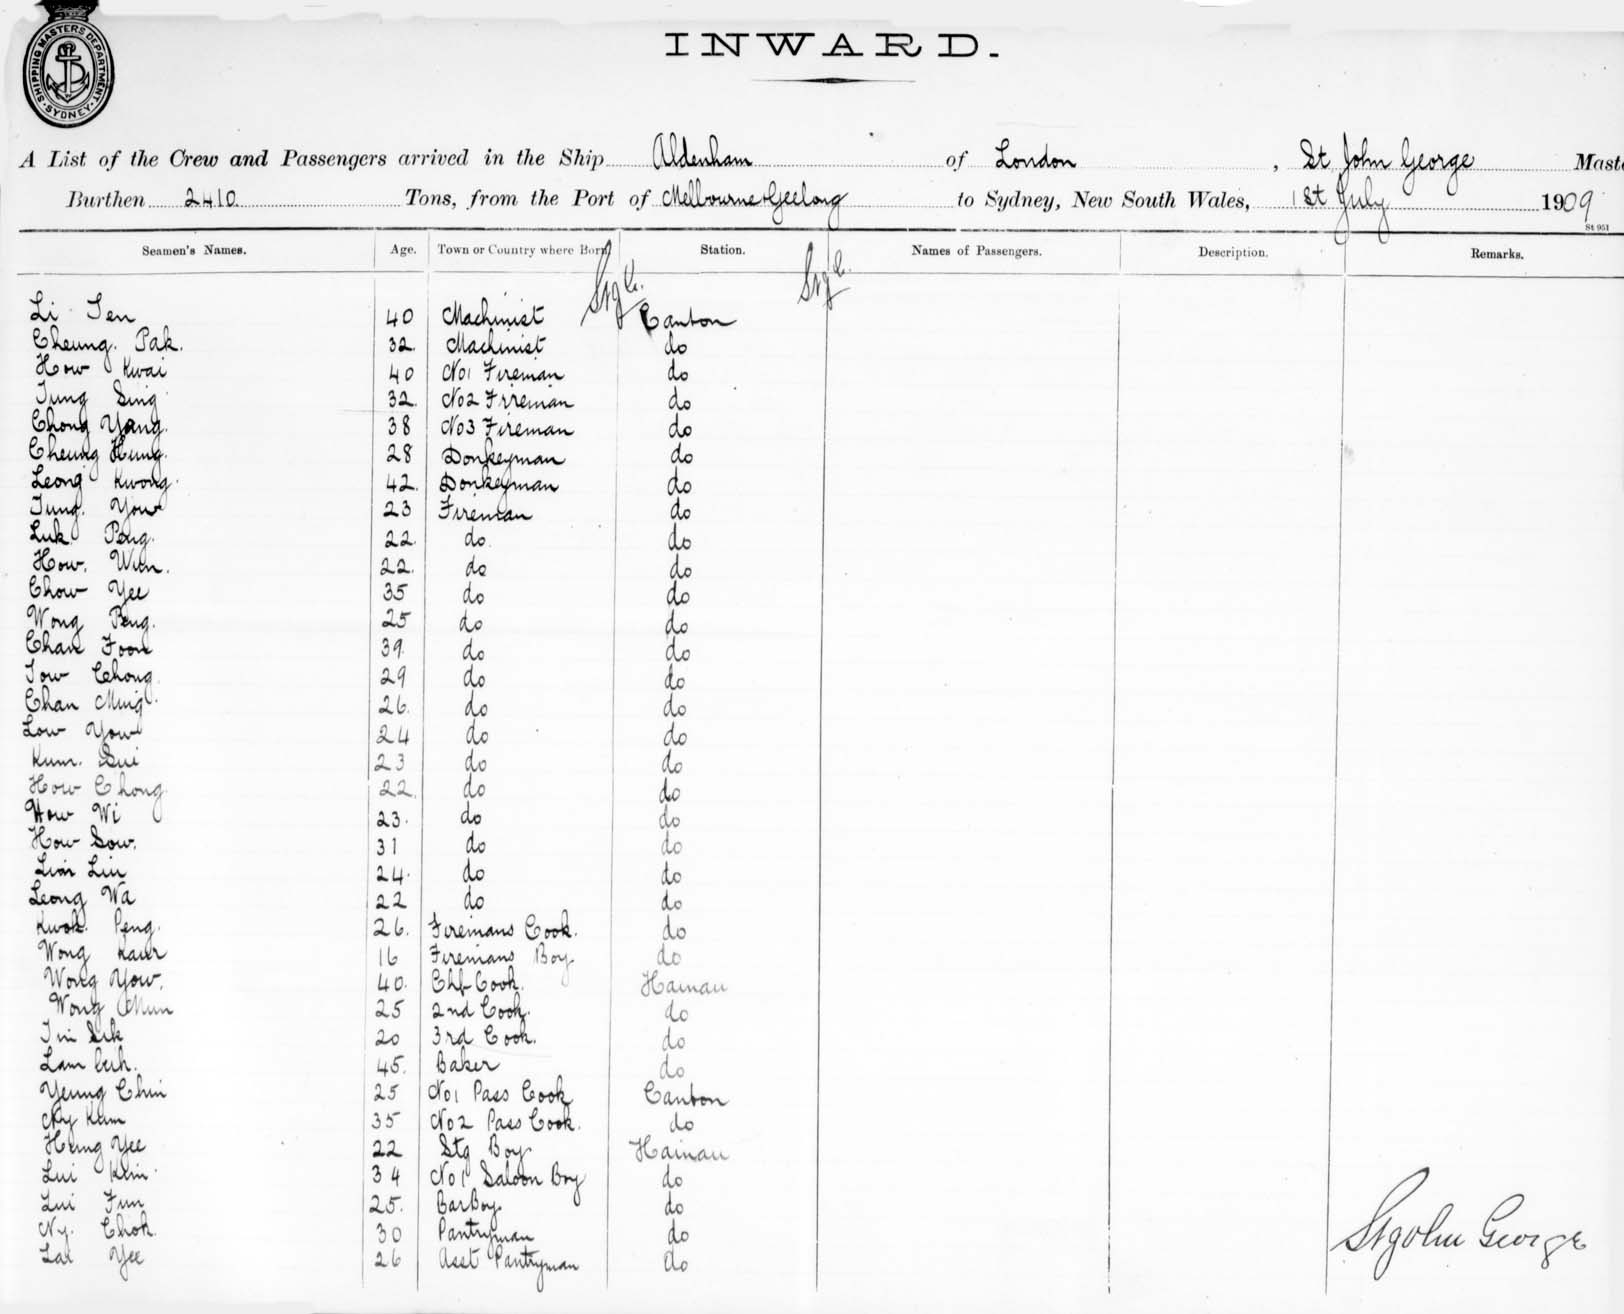 SHIPPING MASTERS DEPARTMENT. SYDNEY
INWARD.
A List of the Crew and Passengers arrived in the Ship Aldenham of London, St John George Maste
Burthen 2410 Tons, from the Port of Melbourne & Geelong to Sydney, New South Wales, 1st July 1909
St 951
Seamen's Names. Age. Town or Country where Born Station. Names of Passengers. Description. Remarks.
St J G. St J G.
Li Sen 40 Machinist Canton
Cheung. Pak. 32. Machinist do
How Kwai 40 No1 Fireman do
Tung Sing 32. No2 Fireman do
Chong Yang. 38 No3 Fireman do
Cheung Hung. 28 Donkeyman do
Leong Kwong. 42. Donkeyman do
Tung. You 23 Fireman do
Luk Peng. 22. do do
How. Wen. 22. do do
Chow Yee 35 do do
Wong Peng. 25 do do
Chan Foon 39. do do
Tow Chong. 29 do do
Chan Ming. 26. do do
Low You 24 do do
Kum. Sui 23 do do
How Chong. 22. do do
How Wi 23. do do
How Sow. 31 do do
Lim Lin 24. do do
Leong Wa 22 do do
Kwok Peng. 26. Firemans Cook. do
Wong 16 Firemans Boy do
Wong Yow. 40. Chf Cook. Hainau
Wong Mun 25 2nd Cook. do
Sik 20 3rd Cook. do
Lam 45. Baker do
Yeung Chin 25 No1 Pass Cook Canton
Ny Kum 35 No2 Pass Cook. do
Hung Yee 22 Stg Boy Hainau
Lui Kim 34 No1 Saloon Boy do
Lui Fun 25. BarBoy do
Ny. Chok. 30 Pantryman do
Lai Yee 26 Asst Pantryman do
St John George